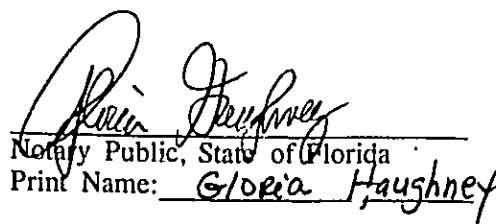 Gloria Haughney
Notary Public, State of Florida
Print Name: Gloria Haughney